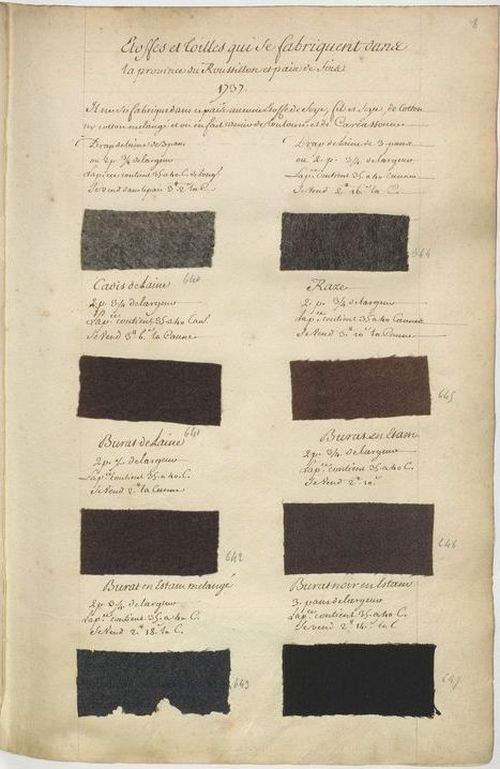 8
Etoffes et toilles qui Se fabriquent dans
la province du Roussillon et païs de Foix
1737.
Il ne Se fabrique dans ce païs aucune Etoffe de Soye, fil et Soye, de Cotton
ny cotton mélangé et on en fait venir de Toulouse et de Carcassonne
Drap de laine de 3 pans
ou 2 p. 3/4 de largeur
la p.ce contient 35 a 40 C. de long.
Se vend dans le païs 3.# 2.s la C.
Drap de laine de 3 pans
ou 2 p. 3/4 de largeur
La p.ce contient 35 a 40 Cannes
Se Vend 2.# 16.s la C.
640
644
Cadis de Laine
2 p. 3/4 de largeur
La p.ce contient 35 a 40 Can.
Se Vend 3.# 6.s la Canne
Raze
2 p. 3/4 de largeur
La p.ce contient 35 a 40 Cannes
Se Vend 3.# 10.s la Canne
641
645
Burat de Laine
2 p. de largeur
La p.ce contient 35 a 40 C.
Se Vend 2.# la Canne
Burat en Estam
2 p. 3/4 de largeur
La p.ce contient 35 a 40 C.
Se Vend 2.# 10.s
642
646
Burat en Estam melangé
2 p. 3/4 de largeur
La p.ce contient 35 a 40 C.
Se Vend 2.# 18.s la C.
Burat noir en Estam
3 pans de largeur
La p.ce contient 35 a 40 C.
Se vend 2.# 14.s la C
643
647